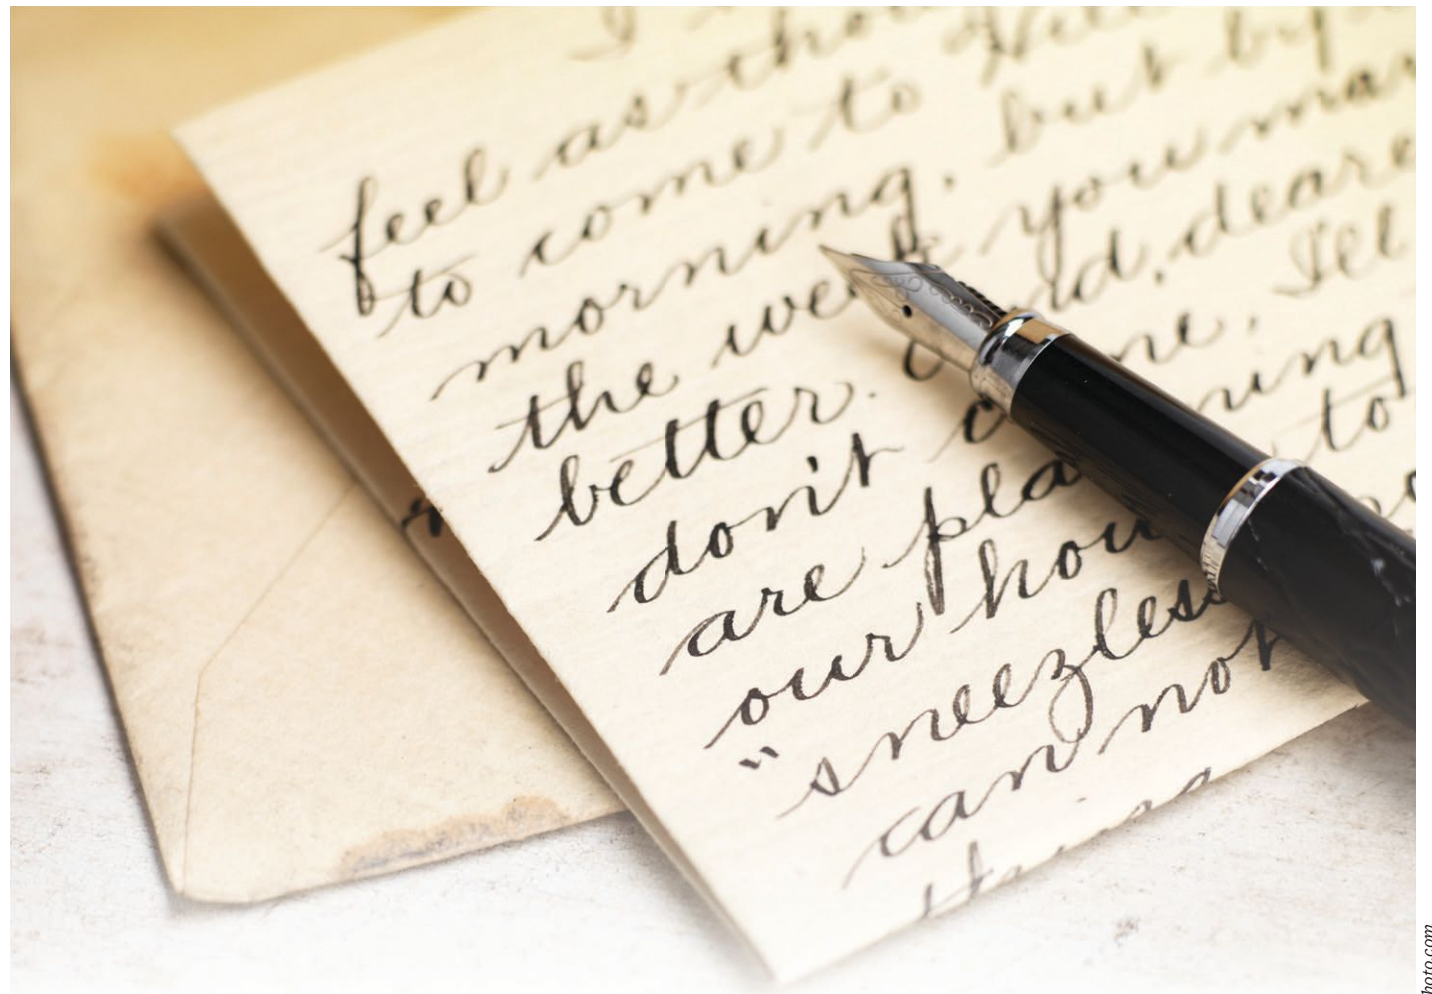 I
feel as tho
to come to
morning, but
the wee you mar
better. ld, deare
don't c me, I'll
are pla ning
our hou to
"sneezless
can not
hoto.com